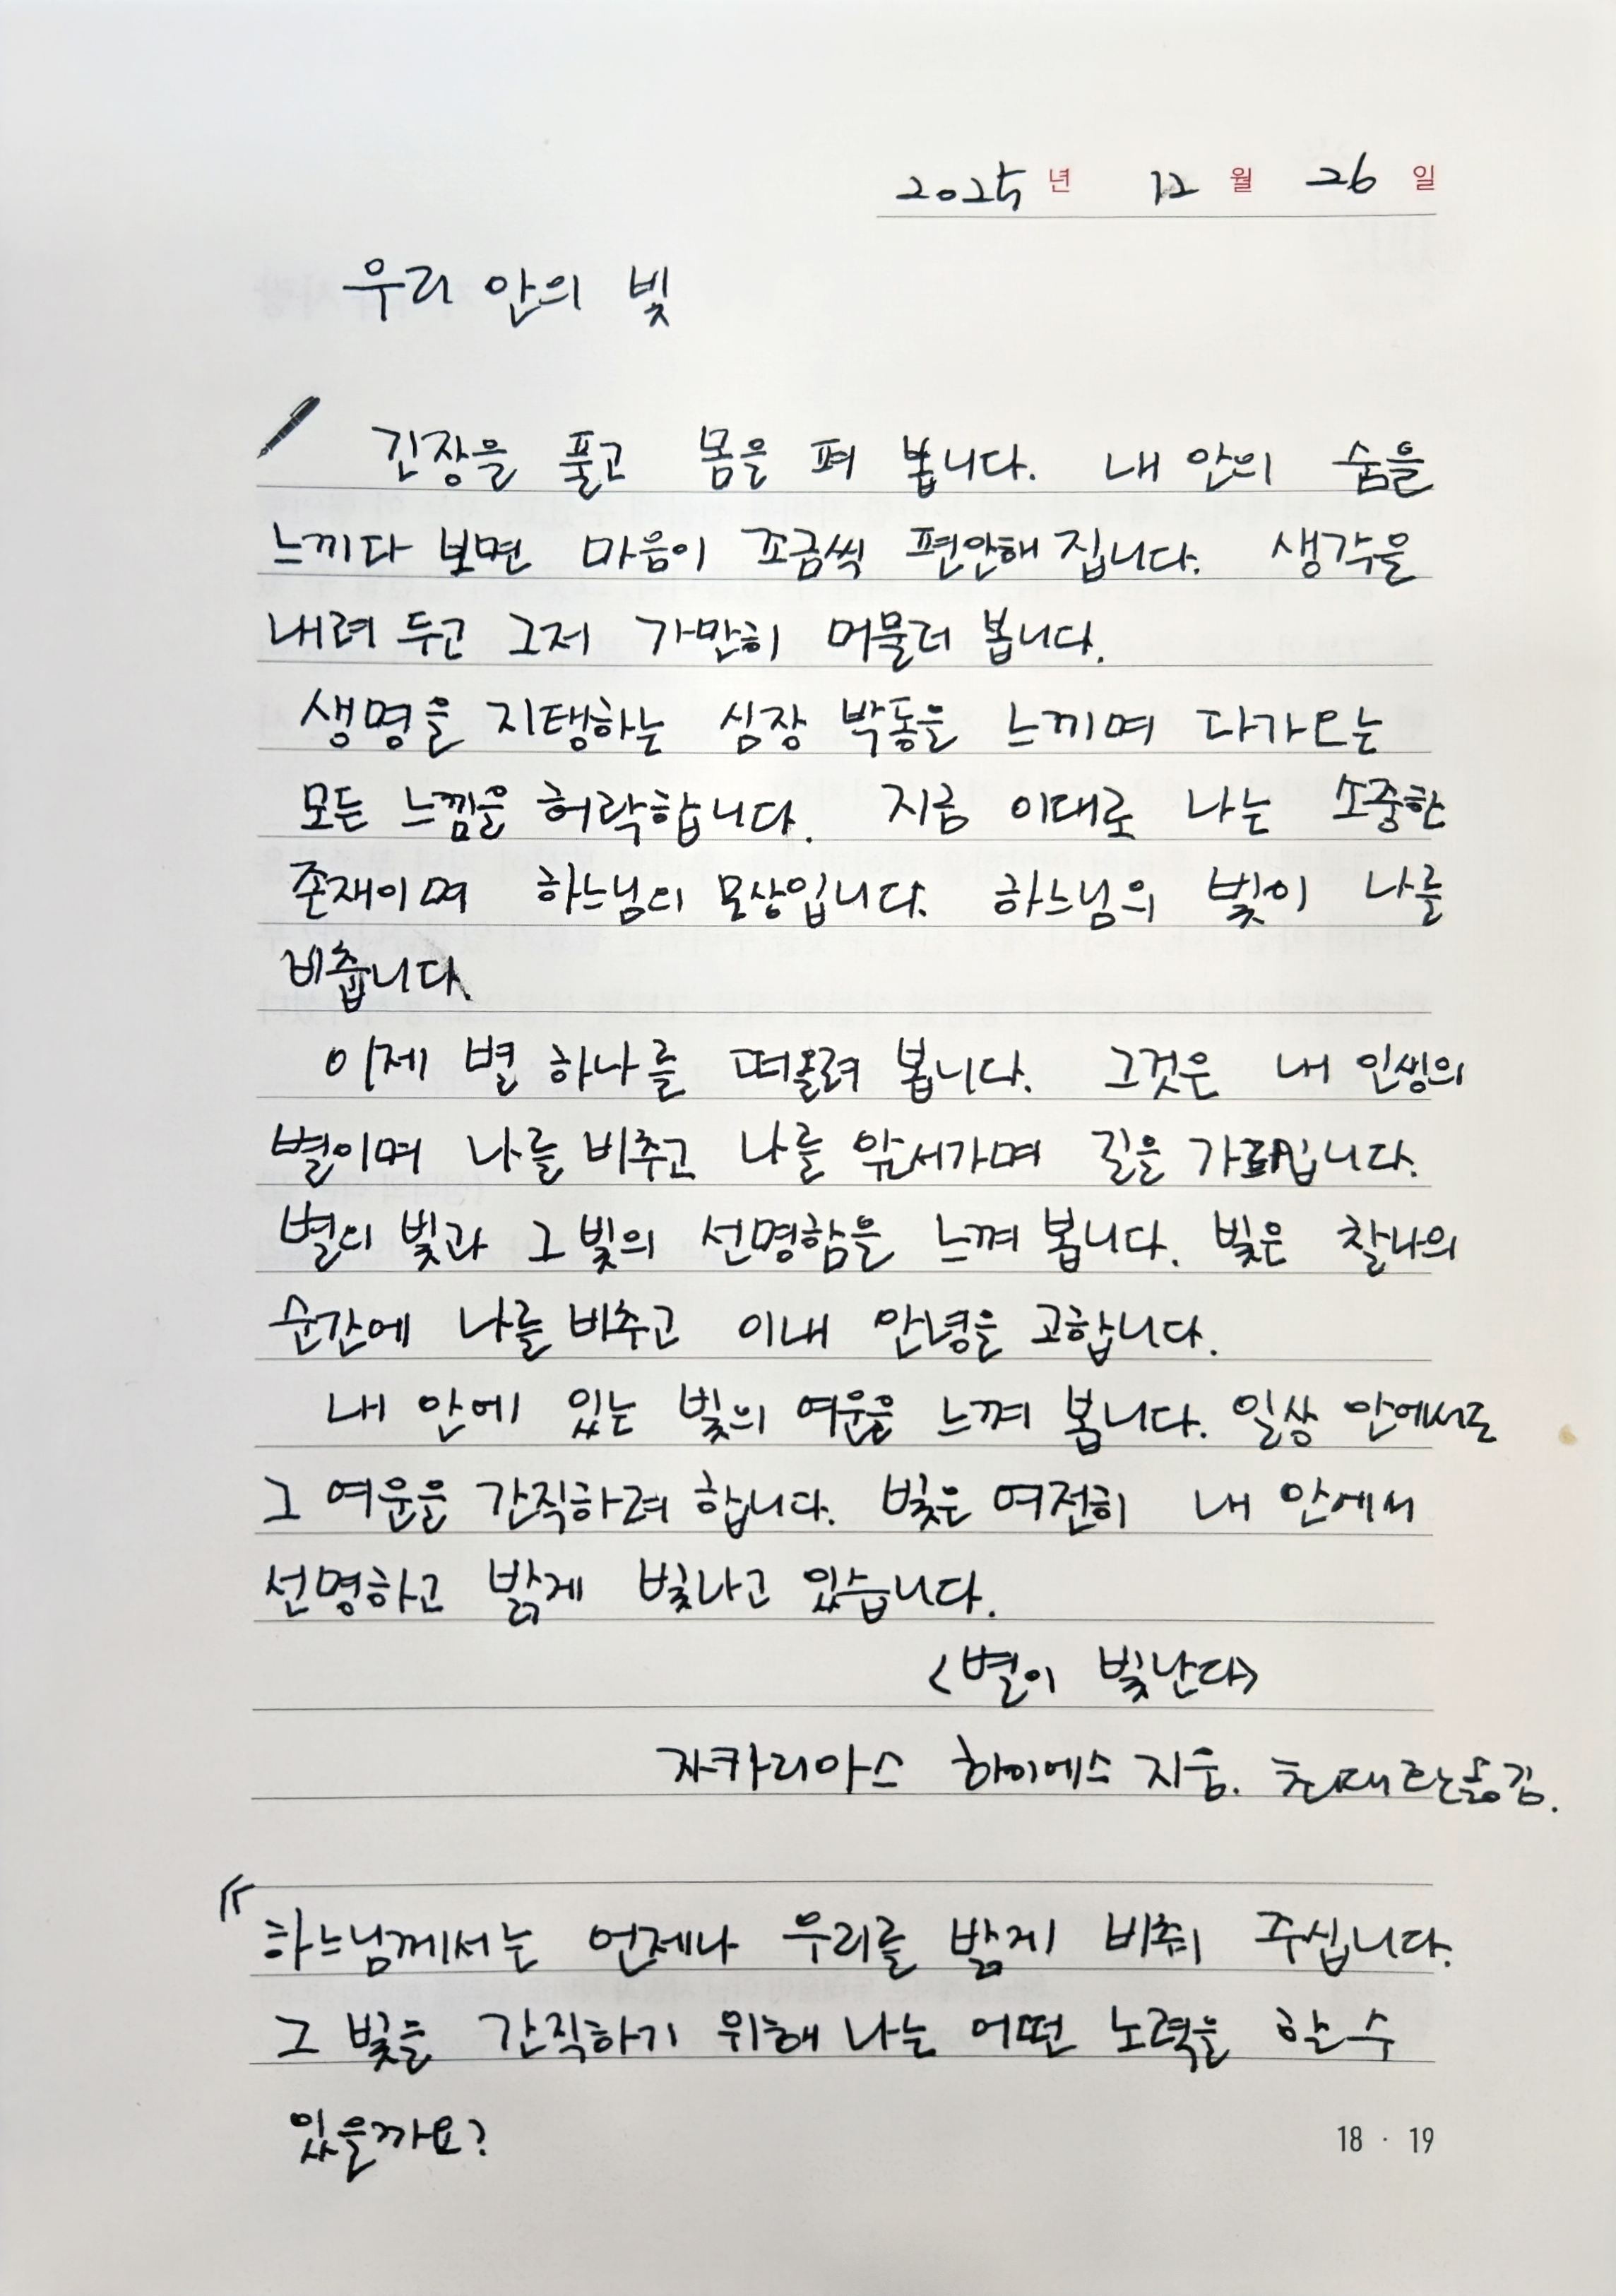 2025년 12월 26일
우리 안의 빛
긴장을 풀고 몸을 펴 봅니다. 내 안의 숨을
느끼다 보면 마음이 조금씩 편안해 집니다. 생각을
내려 두고 그저 가만히 머물러 봅니다.
생명을 지탱하는 심장 박동을 느끼며 다가오는
모든 느낌을 허락합니다. 지금 이대로 나는 소중한
존재이며 하느님의 모상입니다. 하느님의 빛이 나를
비춥니다.
이제 별 하나를 떠올려 봅니다. 그것은 내 인생의
별이며 나를 비추고 나를 앞서가며 길을
별의 빛과 그 빛의 선명함을 느껴 봅니다. 빛은 찰나의
순간에 나를 비추고 이내 안녕을 고합니다.
내 안에 있는 빛의 여운을 느껴 봅니다. 일상 안에서도
그 여운을 간직하려 합니다. 빛은 여전히 내 안에서
선명하고 밝게 빛나고 있습니다.
<별이 빛난다>
자카리아스 하이에스 지음. 옮김.
"하느님께서는 언제나 우리를 밝게 비춰 주십니다.
그 빛을 간직하기 위해 나는 어떤 노력을 할 수
있을까요?
18 · 19